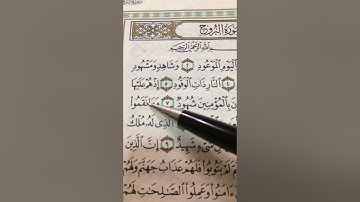 سُورَةُ الْبُرُوجِ
بِسْمِ اللَّهِ الرَّحْمَٰنِ الرَّحِيمِ
الْيَوْمِ الْمَوْعُودِ ٢ وَشَاهِدٍ وَمَشْهُودٍ
٤ النَّارِ ذَاتِ الْوَقُودِ ٥ إِذْ هُمْ عَلَيْهَا
بِالْمُؤْمِنِينَ شُهُودٌ ٧ وَمَا نَقَمُوا
الَّذِي لَهُ مُلْكُ
شَيْءٍ شَهِيدٌ ٩ إِنَّ الَّذِينَ
ثُمَّ لَمْ يَتُوبُوا فَلَهُمْ عَذَابُ جَهَنَّمَ وَلَهُمْ
ءَامَنُوا وَعَمِلُوا الصَّالِحَاتِ لَهُمْ